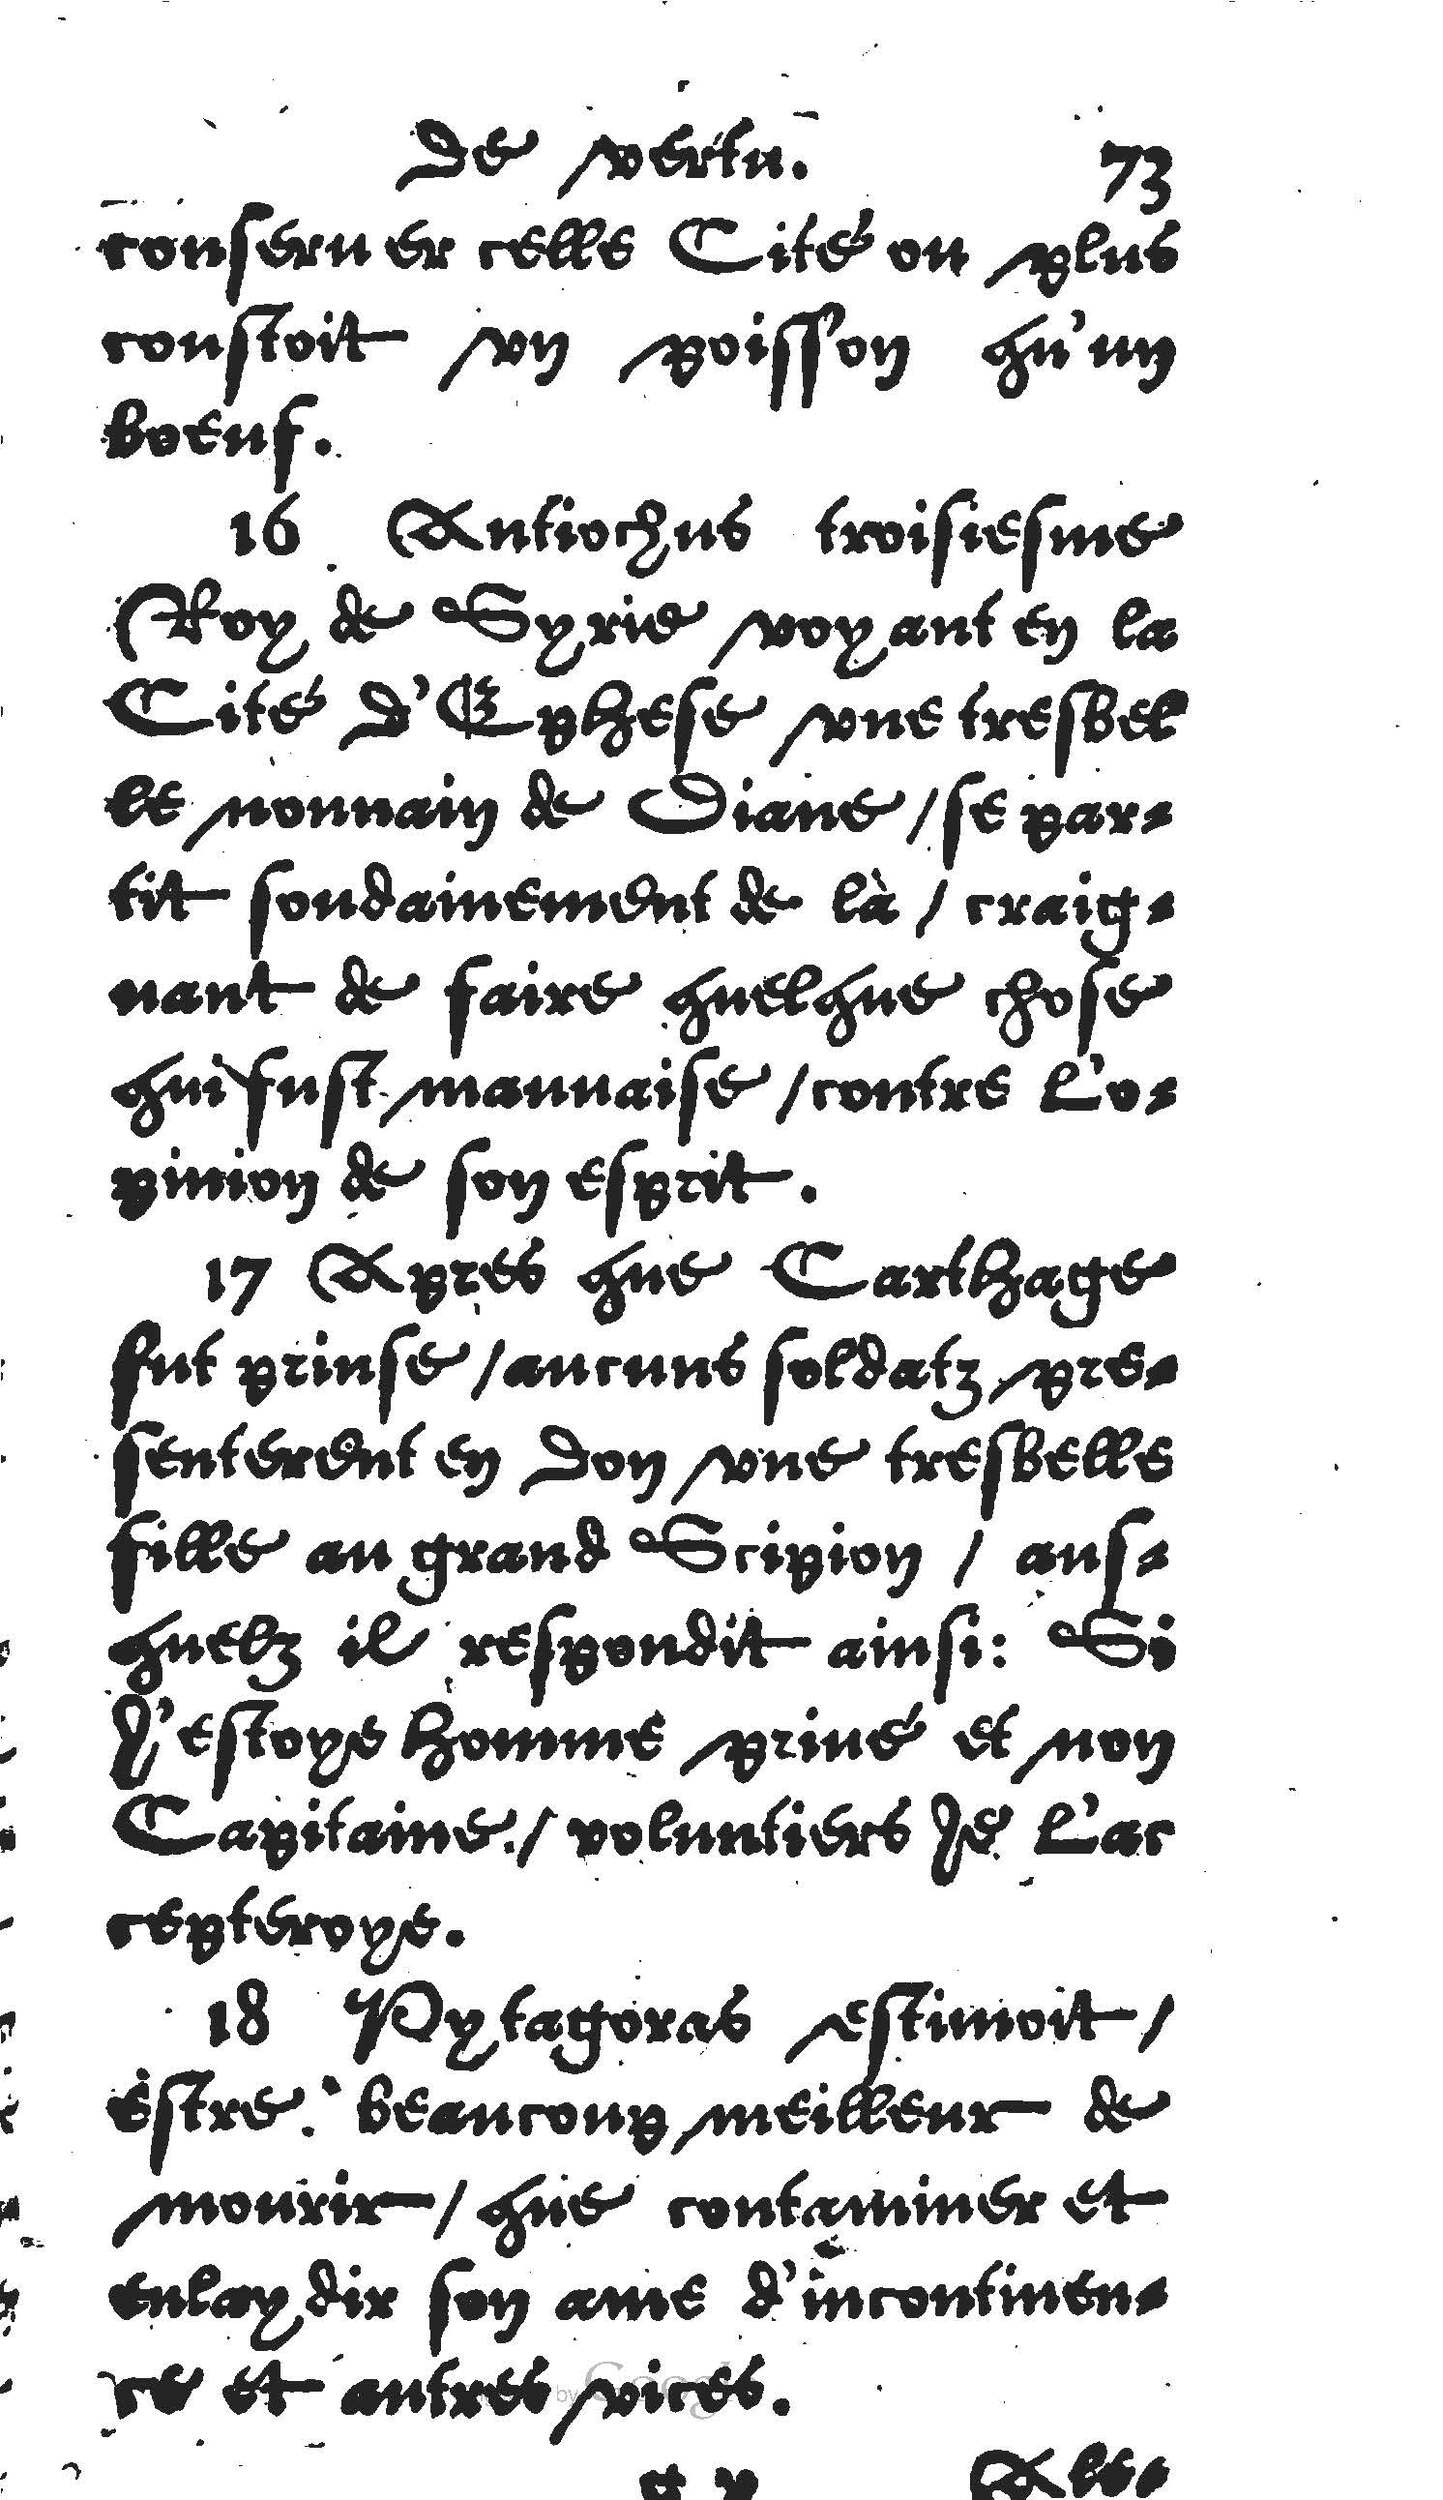 de vertu. 73
conseruer celle Cité ou plus
coustoit vn poisson qu'un
boeuf.
16 Antiochus troisiesme
Roy de Syrie voyant en la
Cité d'Ephese vne tresbel
le nonnain de Diane / se par-
tit soudainement de là / craig-
nant de faire quelque chose
qui fust mauuaise / contre l'o-
pinion de son esprit.
17 Apres que Carthage
fut prinse / aucuns soldatz pre-
senterent en don vne tresbelle
fille au grand Scipion / aus-
quelz il respondit ainsi: Si
j'estoye homme priué et non
Capitaine. / voluntiers je l'ac
cepteroye.
18 Pytagoras estimoit /
estre beaucoup meilleur de
mourir / que contaminer et
enlaydir son ame d'incontinen-
ce et autres vices.
Ale-